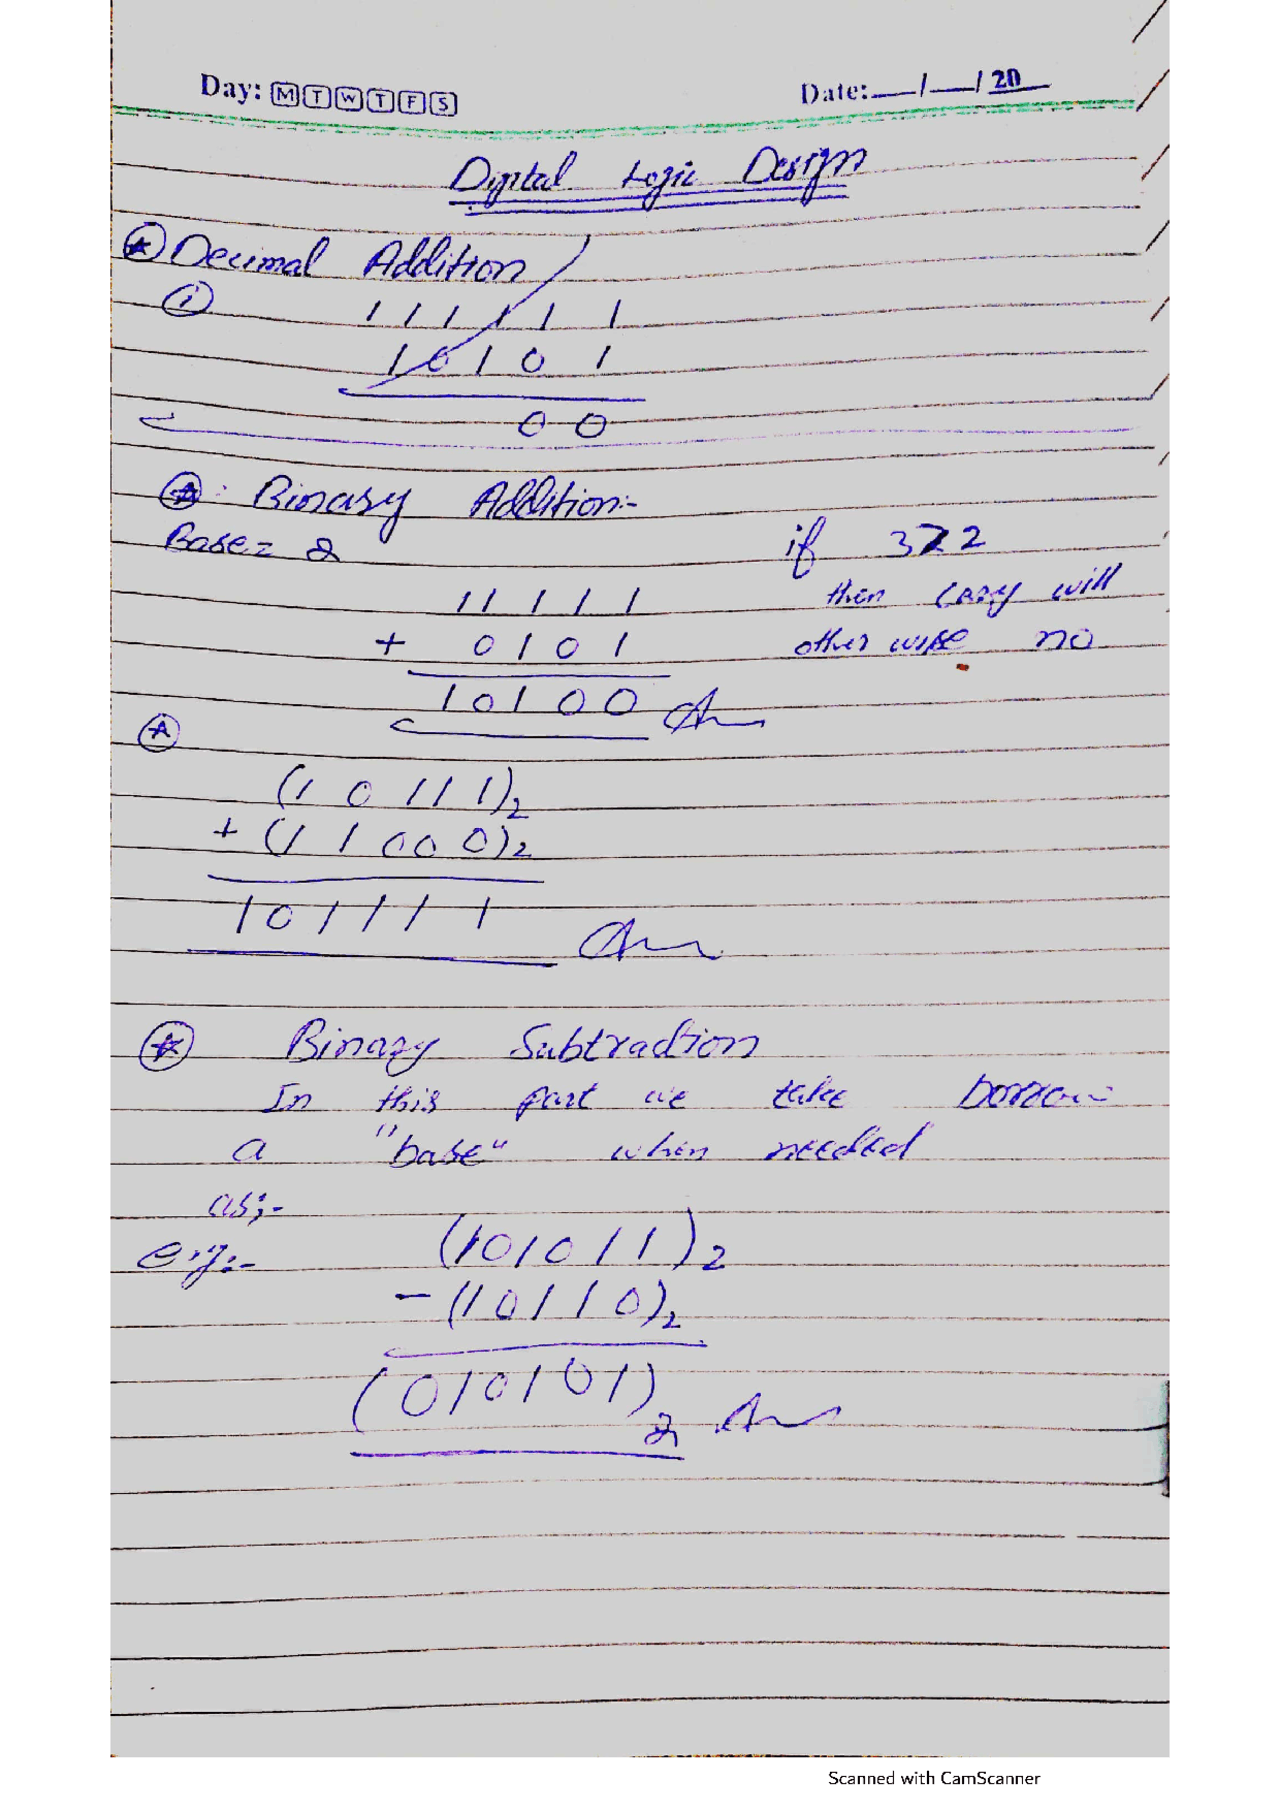 Day: M T W T F S Date: __/__/20__
Digital Logic Design
Decimal Addition
i
1 1 1 1 1 1
1 0 1 0 1
0 0
Binary Addition:-
Base = 2 if 372
1 1 1 1 1 then carry will
+ 0 1 0 1 other wise no
1 0 1 0 0 Ans
(1 0 1 1 1)2
+ (1 1 0 0 0)2
1 0 1 1 1 1 Ans
Binary Subtraction
In this part we take borrow
a "base" when needed
as;-
e.g:-
(101011)2
- (10110)2
(010101)2 Ans
Scanned with CamScanner